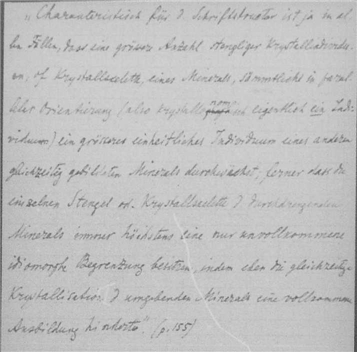 „Charakteristisch für d. Schriftstruktur ist ja in al-
len Fällen, dass eine grössre Anzahl stengliger Krystallindividu-
en, od. Krystallskelette, eines Minerals, sämmtlichst in paral-
leler Orientierung (also krystallographisch eigentlich ein Indi-
viduum) ein grösseres einheitliches Individuum eines anderen
gleichzeitig gebildeten Minerals durchwächst, ferner dass die
einzelnen Stengel od. Krystallskelette d. durchdringenden
Minerals immer höchstens eine nur unvollkommene
idiomorphe Begrenzung besitzen, indem eben die gleichzeitige
Krystallisation d. umgebenden Minerals eine vollkommene
Ausbildung hinderte". (p. 155)